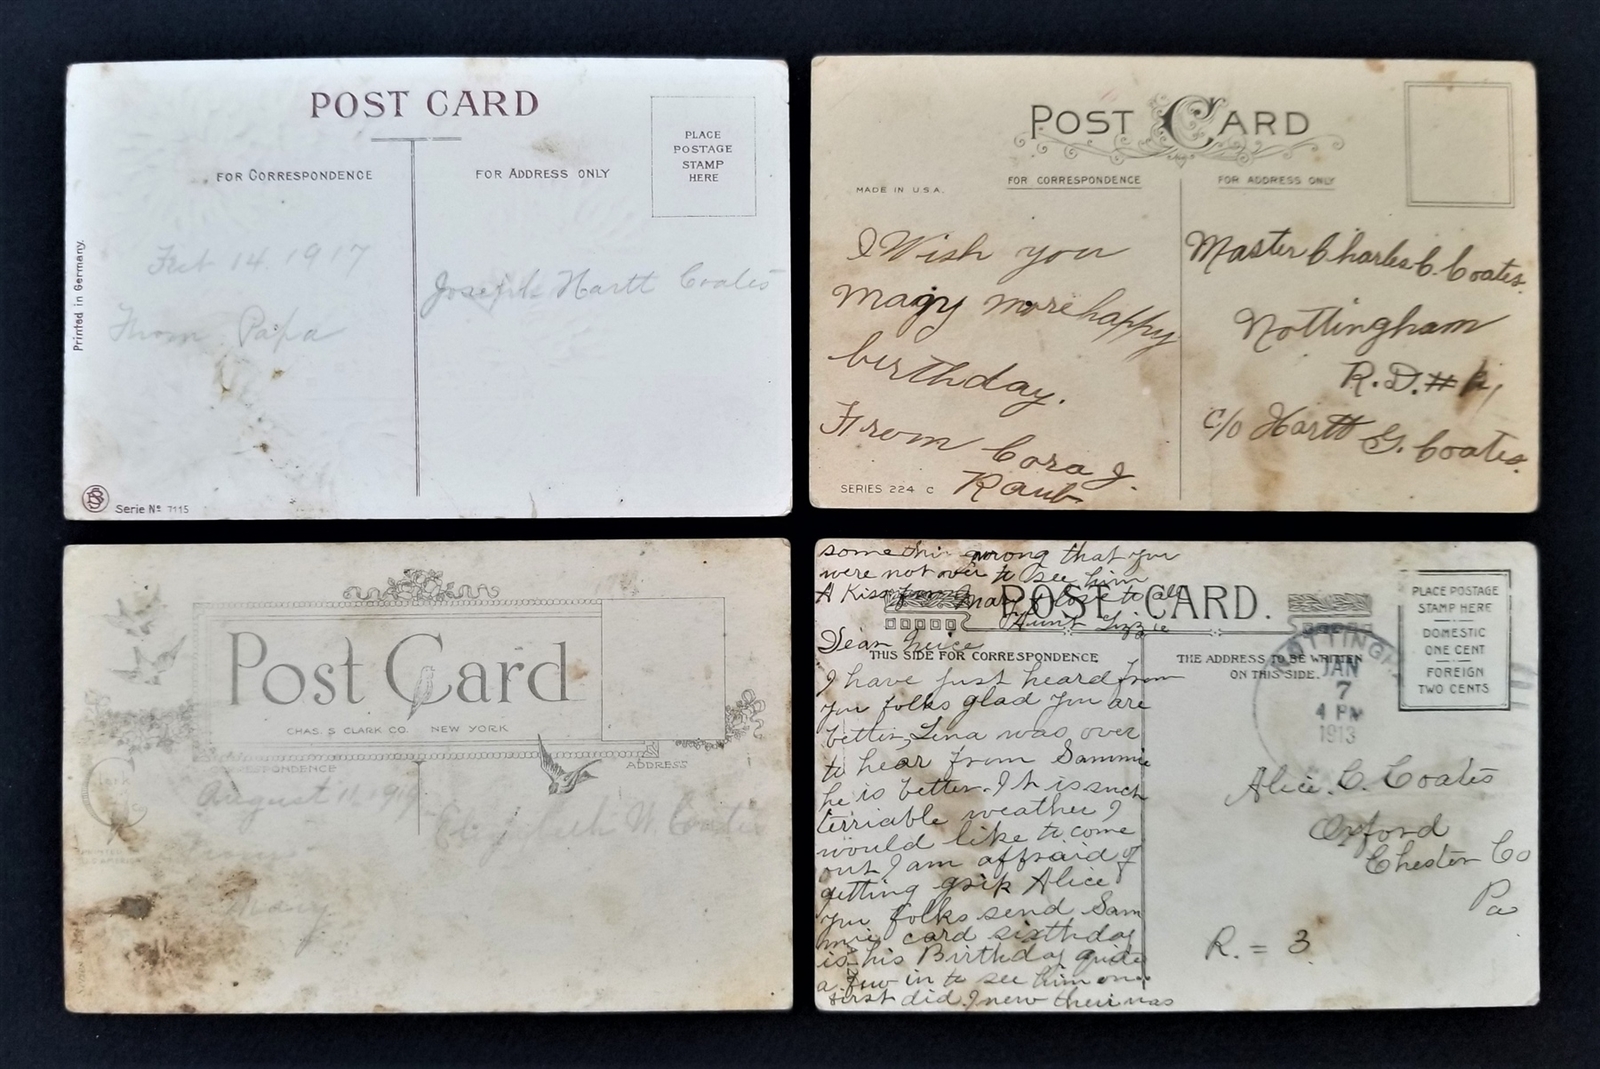 POST CARD
FOR CORRESPONDENCE
FOR ADDRESS ONLY
PLACE
POSTAGE
STAMP
HERE
Printed in Germany.
Feb 14 1917
From Papa
Joseph Hartt Coates
Serie No 7115
POST CARD
MADE IN U.S.A.
FOR CORRESPONDENCE
FOR ADDRESS ONLY
I Wish you
many more happy
birthday.
From Cora J.
Raub
SERIES 224 C
Master Charles C. Coates.
Nottingham
R.D. #
c/o Hartt G. Coates.
Post Card
CHAS. S. CLARK CO. NEW YORK
CORRESPONDENCE
ADDRESS
August 11, 191
Mary
Elizabeth W. Coates
some thin wrong that you
were not over to see him
A Kiss from Mary love to all
Aunt Lizzie
POST CARD.
THIS SIDE FOR CORRESPONDENCE
THE ADDRESS TO BE WRITTEN
ON THIS SIDE.
PLACE POSTAGE
STAMP HERE
DOMESTIC
ONE CENT
FOREIGN
TWO CENTS
NOTTINGH
JAN
7
4 PM
1913
Dear Neice
I have just heard from
you folks glad you are
better, Lena was over
to hear from Sammie
he is better. It is such
terriable weather I
would like to come
out I am affraid of
getting grip Alice
you folks send Sam
mie card sixthday
is his Birthday quite
a few in to see him one
first did I new their was
Alice. C. Coates
Oxford
Chester Co
Pa
R. = 3